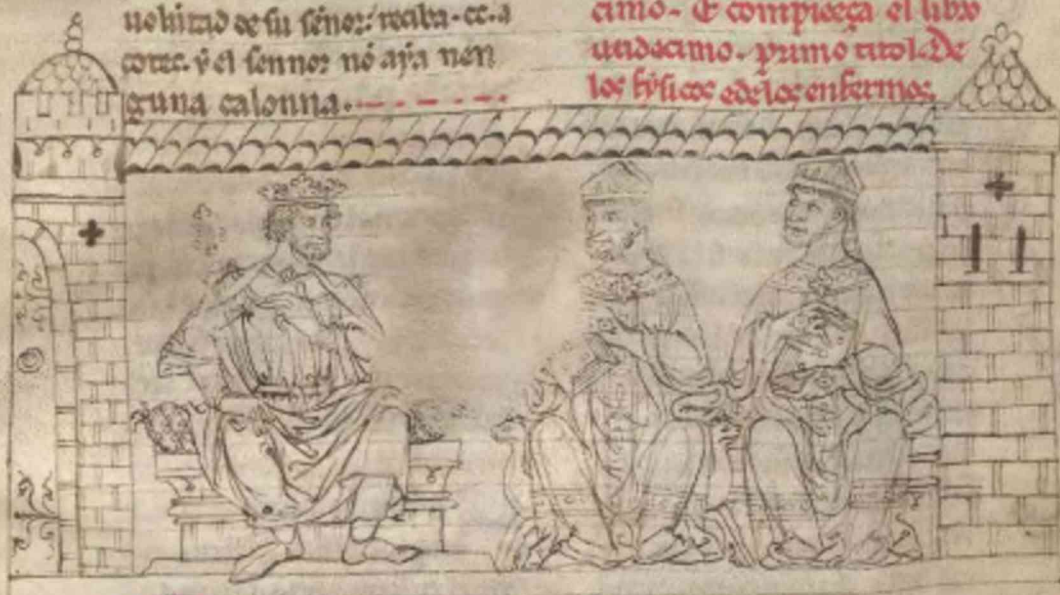 uoluntad de su sennor. reciba .cc. a
çotes. y el sennor nō aya nen
guna calonna.
cimo. E compieça el libro
undecimo. primo titol. De
los fysicos e de los enfermos.